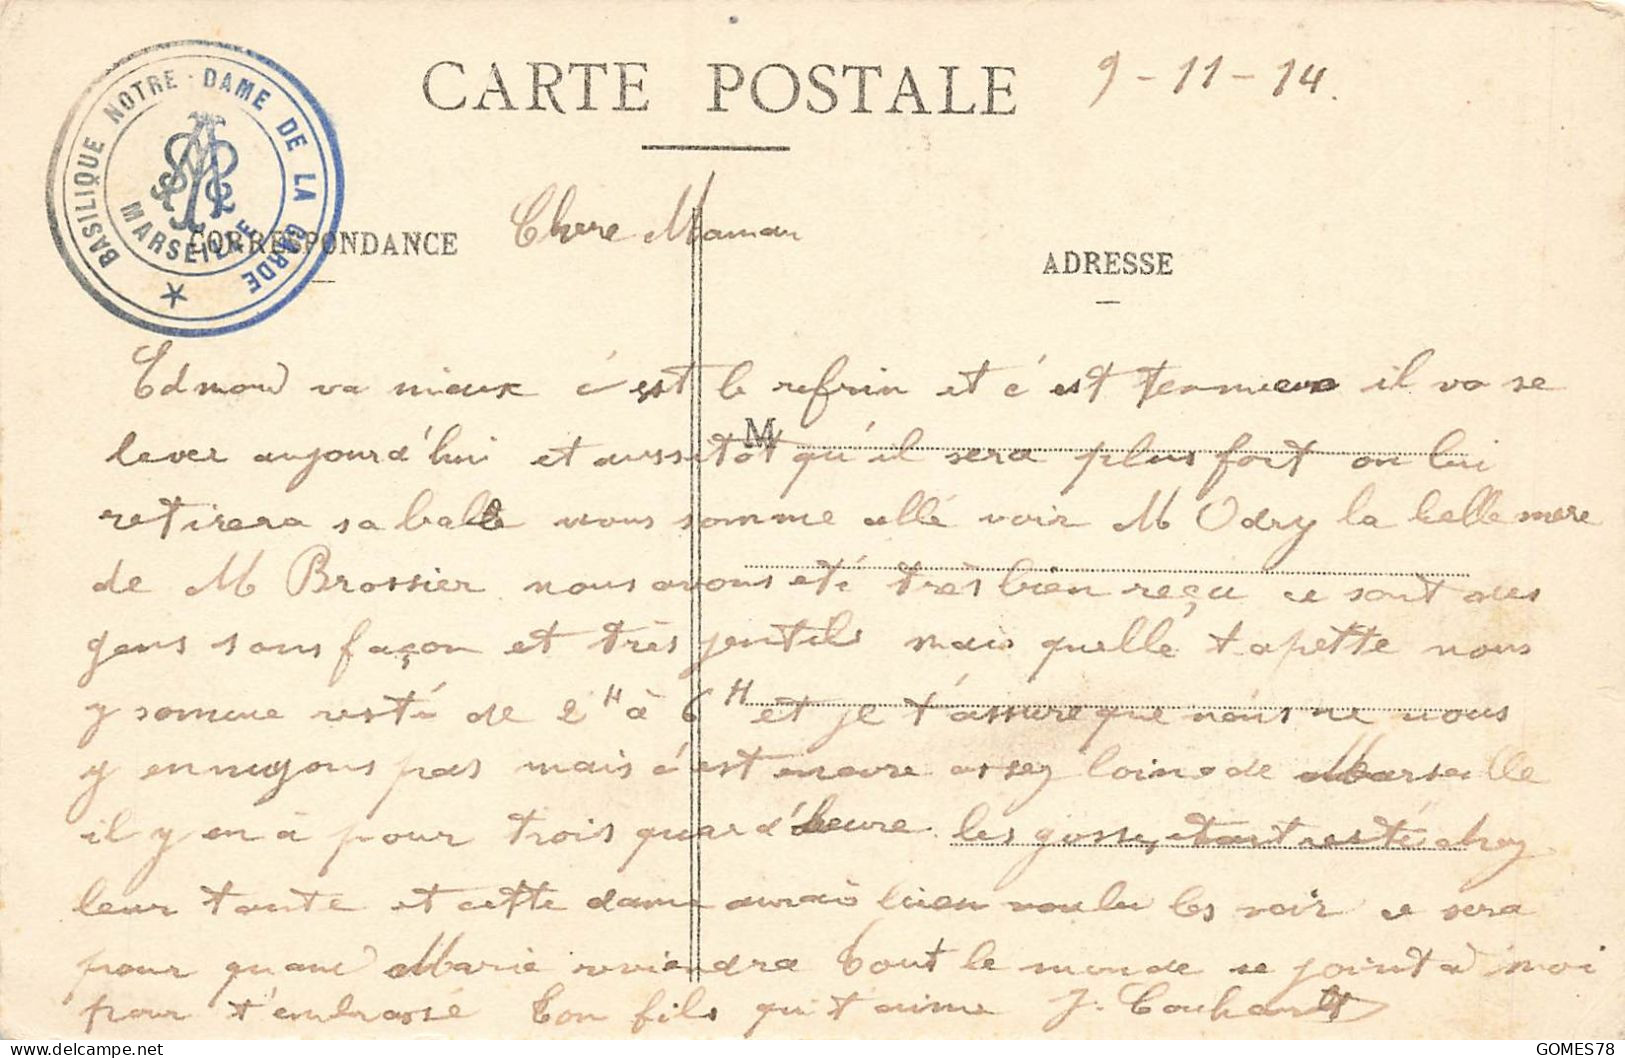 CARTE POSTALE
9-11-14.
BASILIQUE NOTRE-DAME DE LA GARDE
MARSEILLE
CORRESPONDANCE
Chere Maman
ADRESSE
M
Edmond va mieux c'est le refrin et c'est il va se
lever aujourd'hui et aussitot qu'il sera plus fort on lui
retirera sa balle nous somme allé voir M Odry la belle mere
de M Brossier nous avons eté très bien reçu ce sont des
gens sans façon et très jentils mais quelle tapette nous
y somme resté de 2H à 6H et je t'assure que nous ne nous
y ennuyons pas mais c'est encore assez loing de Marseille
il y en à pour trois quard d'heure les gosse, etant resté chez
leur tante et cette dame aurais bien voulu les voir ce sera
pour quand Marie reviendra tout le monde se joint a moi
pour t'embrassé Ton fils qui t'aime J. Couhardt
GOMES78